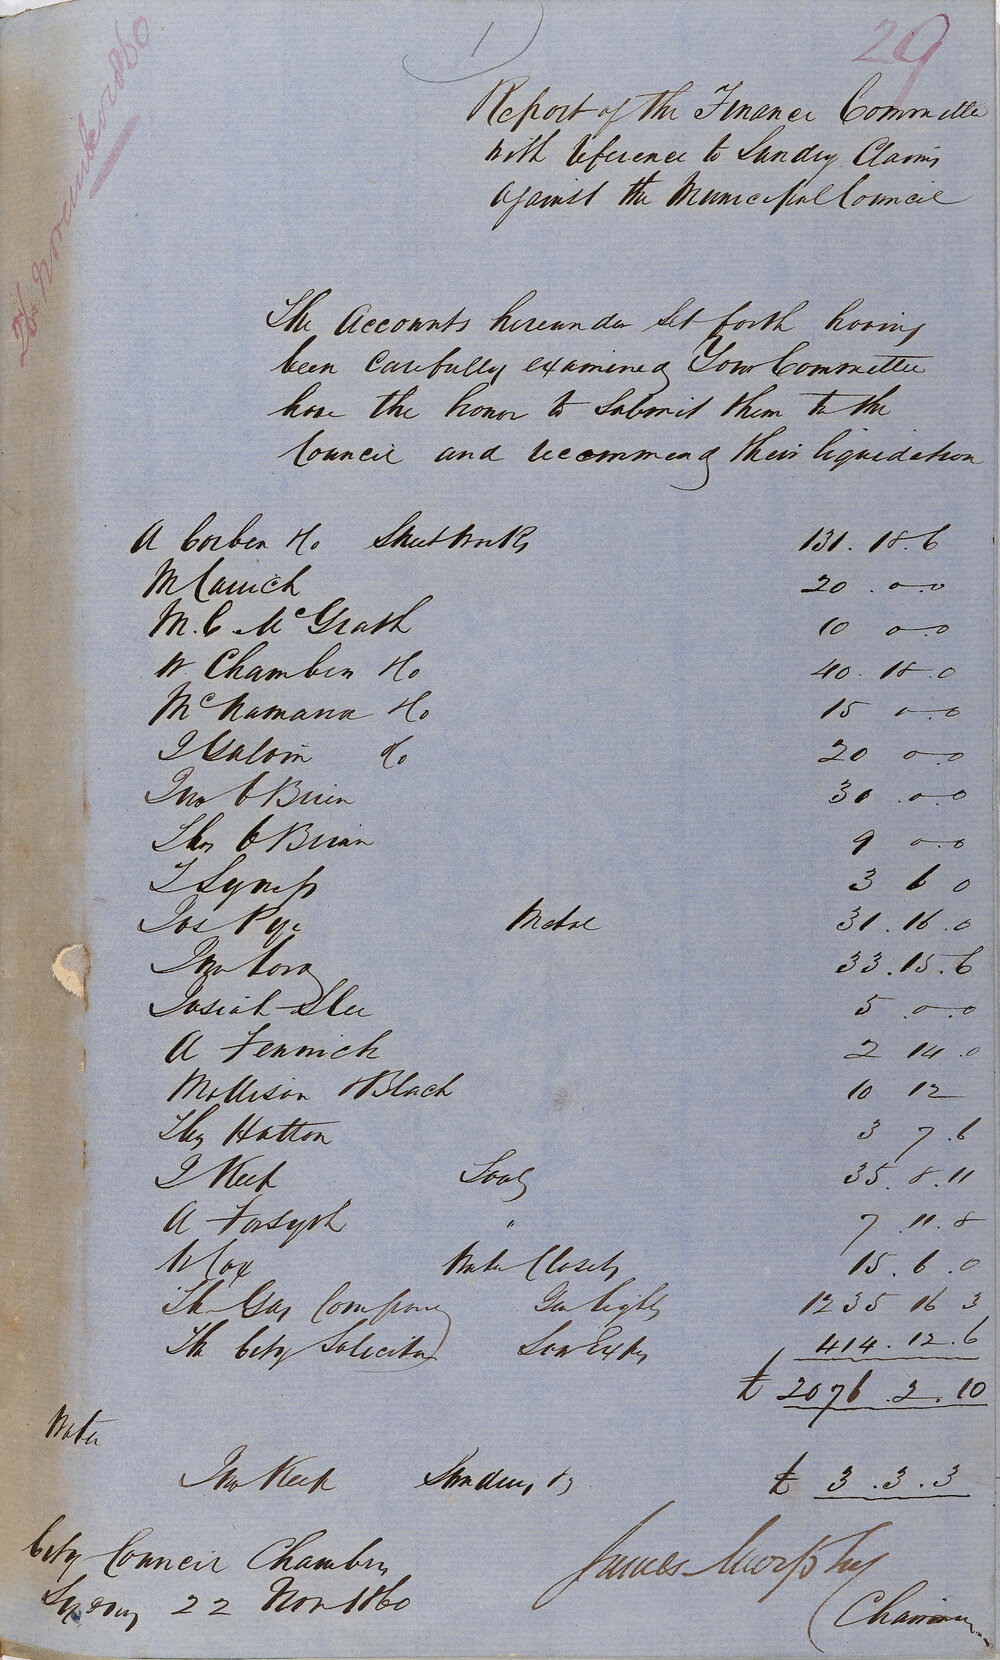 1
29
26 November 1860
Report of the Finance Committee
with reference to Sundry Claims
against the Municipal Council
The Accounts hereunder set forth having
been Carefully examined Your Committee
have the honor to submit them to the
Council and recommend their liquidation
A Corben Do Street Works 131.18.6
M 20.0.0
M.C McGrath 10 0.0
W Chamben Do 40.18.0
McNamara Do 15 0.0
J Galvin Do 20 0.0
Jno O Brien 30.0.0
Thos O Brien 9 0.0
3 6 0
Jos Pye Metal 31.16.0
Jno 33.15.6
Josiah 5.0.0
A Fenwick 2 14.0
Mollison & Black 10 12
Thos Hatton 3 7.6
J Keep Tools 35.8.11
A Forsyth " 7.11.8
W Cox Water Closets 15.6.0
The Gas Company Gas Lights 1235 16 3
The City Solicitor Law Exps 414.12.6
£ 2076.2.10
Water
Jno Keep Sundries £ 3.3.3
City Council Chambers
Sydney 22 Nov 1860
James Murphy
Chairman